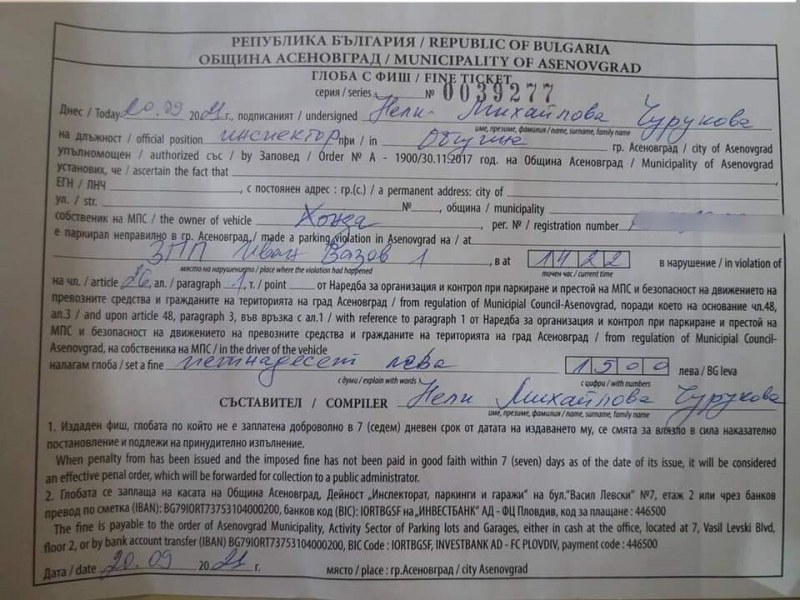 РЕПУБЛИКА БЪЛГАРИЯ / REPUBLIC OF BULGARIA
ОБЩИНА АСЕНОВГРАД / MUNICIPALITY OF ASENOVGRAD
ГЛОБА С ФИШ / FINE TICKET
серия / series № 0039277
Днес / Today 20.09 2021 г., подписаният / undersigned Нели Михайлова Чурукова
име, презиме, фамилия / name, surname, family name
на длъжност / official position инспектор при / in Община гр. Асеновград / city of Asenovgrad
упълномощен / authorized със / by Заповед / Order № А - 1900/30.11.2017 год. на Община Асеновград / Municipality of Asenovgrad
установих, че / ascertain the fact that
ЕГН / ЛНЧ , с постоянен адрес : гр.(с.) / a permanent address: city of
ул. / str. № , община / municipality
собственик на МПС / the owner of vehicle Хонда рег. № / registration number
е паркирал неправилно в гр. Асеновград / made a parking violation in Asenovgrad на / at
ЗПП Иван Вазов 1 , в at 1422 в нарушение / in violation of
място на нарушението / place where the violation had happened точен час / current time
на чл. / article 26, ал. / paragraph 1, т. / point от Наредба за организация и контрол при паркиране и престой на МПС и безопасност на движението на
превозните средства и гражданите на територията на град Асеновград / from regulation of Municipial Council-Asenovgrad, поради което на основание чл.48,
ал.3 / and upon article 48, paragraph 3, във връзка с ал.1 / with reference to paragraph 1 от Наредба за организация и контрол при паркиране и престой на
МПС и безопасност на движението на превозните средства и гражданите на територията на град Асеновград / from regulation of Municipial Council-
Asenovgrad, на собственика на МПС / in the driver of the vehicle
налагам глоба / set a fine петнадесет лева 1500 лева / BG leva
с думи / explain with words с цифри / with numbers
СЪСТАВИТЕЛ / COMPILER Нели Михайлова Чурукова
име, презиме, фамилия / name, surname, family name
1. Издаден фиш, глобата по който не е заплатена доброволно в 7 (седем) дневен срок от датата на издаването му, се смята за влязло в сила наказателно
постановление и подлежи на принудително изпълнение.
When penalty from has been issued and the imposed fine has not been paid in good faith within 7 (seven) days as of the date of its issue, it will be considered
an effective penal order, which will be forwarded for collection to a public administrator.
2. Глобата се заплаща на касата на Община Асеновград, Дейност „Инспекторат, паркинги и гаражи" на бул."Васил Левски" №7, етаж 2 или чрез банков
превод по сметка (IBAN): BG79IORT73753104000200, банков код (BIC): IORTBGSF на „ИНВЕСТБАНК" АД - ФЦ Пловдив, код за плащане : 446500
The fine is payable to the order of Asenovgrad Municipality, Activity Sector of Parking lots and Garages, either in cash at the office, located at 7, Vasil Levski Blvd,
floor 2, or by bank account transfer (IBAN) BG79IORT73753104000200, BIC Code : IORTBGSF, INVESTBANK AD - FC PLOVDIV, payment code : 446500
Дата / date 20.09 2021 г. място / place : гр.Асеновград / city Asenovgrad